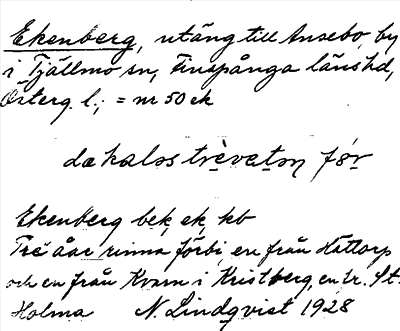 Ekenberg, utäng till Ansebo, by
i Tjällmo sn, Finspånga läns hd,
Österg. l.; = nr 50 ek
Ekenberg bek, ek, kb
Tre åar rinna förbi, en från Hättorp
och en från Kvarn i Kristberg, en fr. St.
Holma N. Lindqvist 1928